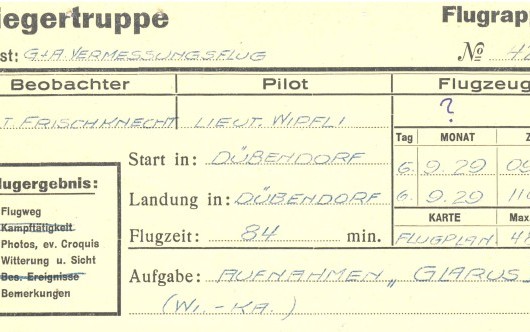 iegertruppe Flugrap
st: G+A VERMESSUNGSFLUG № 4
Beobachter Pilot Flugzeug
T. FRISCHKNECHT LIEUT. WIPFLI ?
Tag MONAT Z
Start in: DÜBENDORF 6. 9.29 09
lugergebnis: Landung in: DÜBENDORF 6. 9.29 11
Flugweg KARTE Max
Kampftätigkeit Flugzeit: 84 min. FLUGPLAN. 4
Photos, ev. Croquis
Witterung u. Sicht
Bes. Ereignisse Aufgabe: AUFNAHMEN „ GLARUS
Bemerkungen
(WI.-KA.)